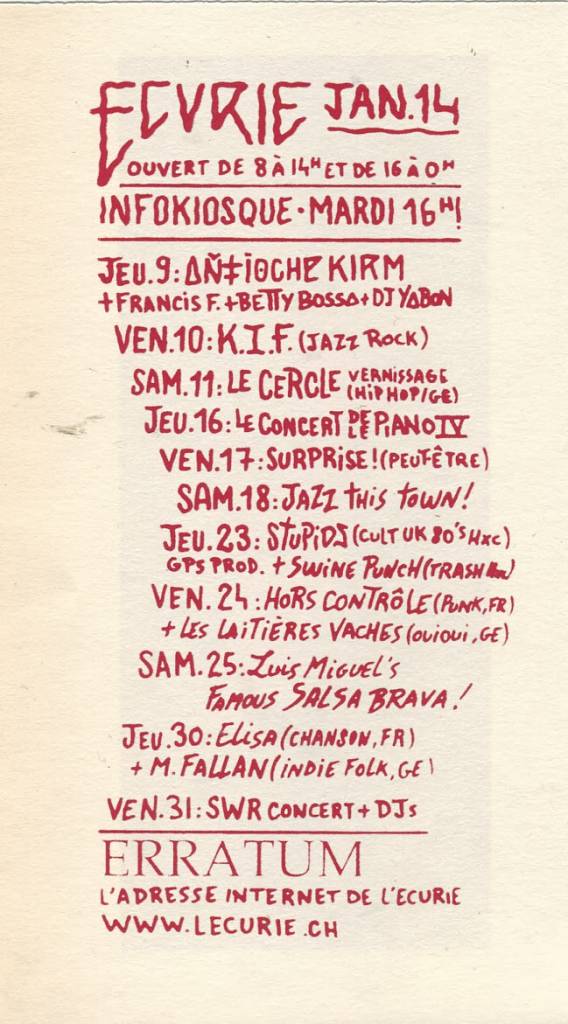 ECVRIE JAN.14
OUVERT DE 8 À 14H ET DE 16 À 0H
INFOKIOSQUE · MARDI 16H!
JEU.9: AÑ‡IOCHE KIRM
+ FRANCIS F. + BETTY BOSSA + DJ YABON
VEN.10: K.I.F. (JAZZ ROCK)
SAM.11: LE CERCLE VERNISSAGE (HIP HOP/GE)
JEU.16: LE CONCERT DE LE PIANO IV
VEN.17: SURPRISE! (PEUT-ÊTRE)
SAM.18: JAZZ THIS TOWN!
JEU.23: STUPIDS (CULT UK 80'S HXC)
GPS PROD. + SWINE PUNCH (TRASH
VEN. 24: HORS CONTRÔLE (PUNK, FR)
+ LES LAITIÈRES VACHES (OUIOUI, GE)
SAM. 25: LUIS MIGUEL'S
FAMOUS SALSA BRAVA!
JEU. 30: ELISA (CHANSON, FR)
+ M. FALLAN (INDIE FOLK, GE)
VEN. 31: SWR CONCERT + DJS
ERRATUM
L'ADRESSE INTERNET DE L'ECURIE
WWW.LECURIE.CH